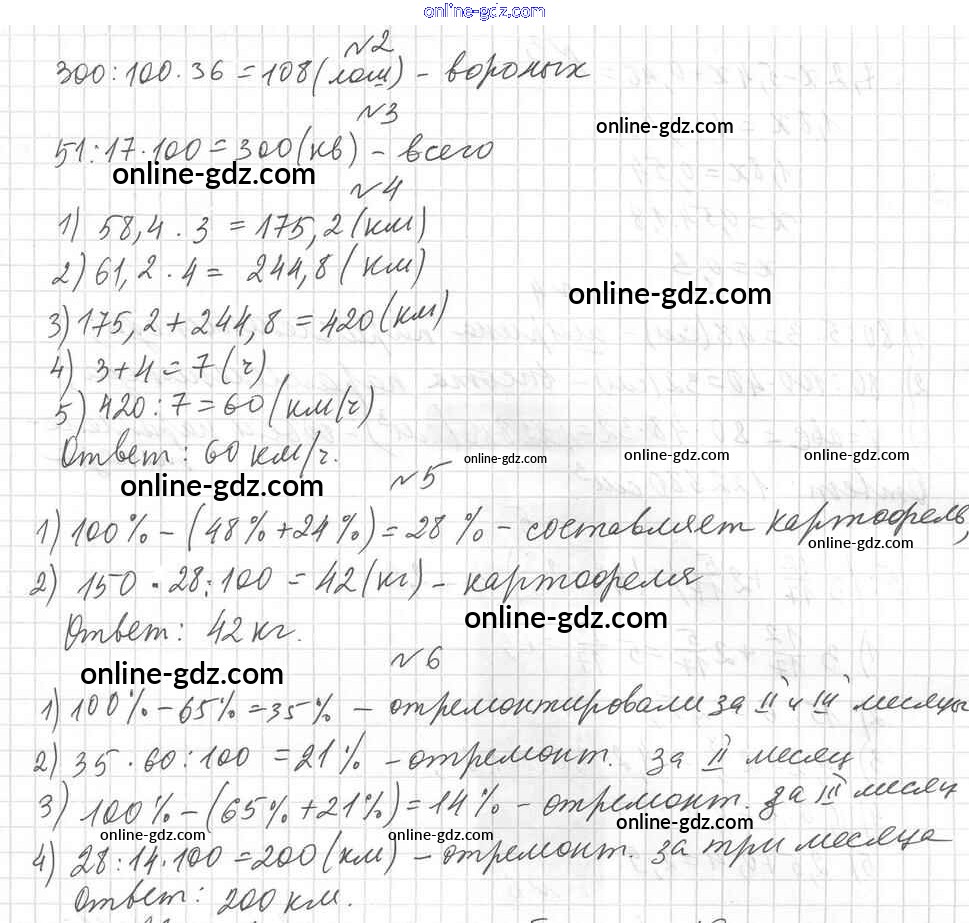 online-gdz.com
№2
300:100·36=108(лош) - вороных
№3
online-gdz.com
51:17·100=300(кв) - всего
online-gdz.com
№4
1) 58,4·3=175,2(км)
2) 61,2·4= 244,8(км)
online-gdz.com
3) 175,2+244,8=420(км)
4) 3+4=7(ч)
5) 420:7=60(км/ч)
Ответ: 60км/ч.
online-gdz.com
online-gdz.com
online-gdz.com
online-gdz.com
№5
1) 100%-(48%+24%)=28% - составляет картофель,
online-gdz.com
2) 150·28:100=42(кг) - картофеля
online-gdz.com
Ответ: 42кг.
№6
online-gdz.com
1) 100%-65%=35% - отремонтировали за II и III месяцы
2) 35·60:100=21% - отремонт. за II месяц
3) 100%-(65%+21%)=14% - отремонт. за III месяц
online-gdz.com
online-gdz.com
online-gdz.com
4) 28:14·100=200(км) - отремонт. за три месяца
Ответ: 200км.